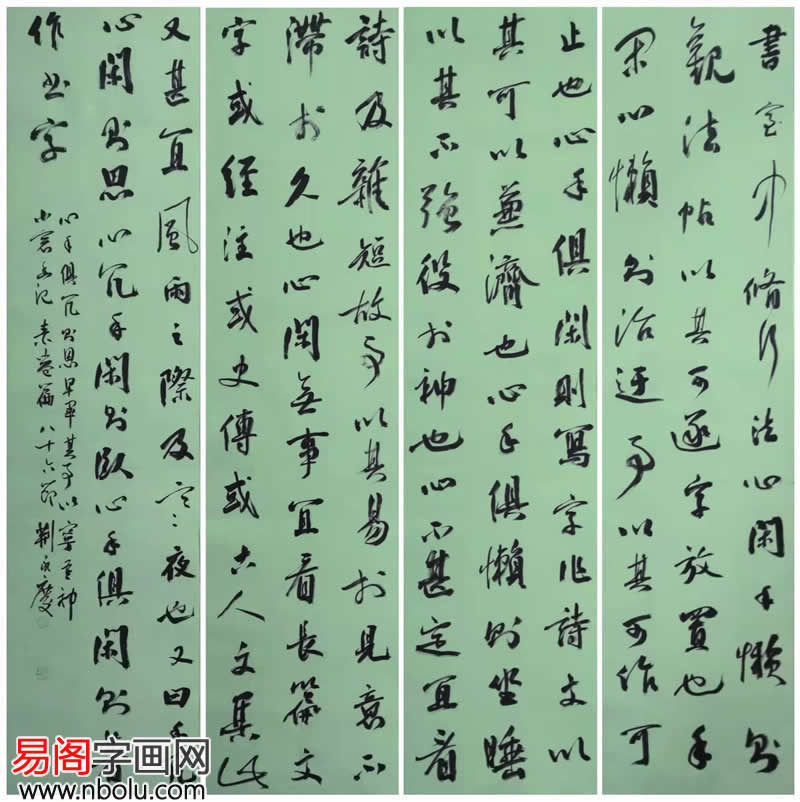 書室中修行法心閑手懶則
觀法帖以其可逐字放置也手
閑心懶則治迂事以其可作可
止也心手俱閑則寫字作詩文以
其可以兼濟也心手俱懶則坐睡
以其不強役於神也心不甚定宜看
詩及雜短故事以其易於見意不
滯於久也心閑無事宜看長篇文
字或經注或史傳或古人文集此
又甚宜風雨之際及寒夜也又曰手冗
心閑則思心冗手閑則臥心手俱閑則著
作书字
心手俱冗則思早畢其事以寧吾神
小窗幽记 素 篇 八十六節 荆
易阁字画网
www.nbolu.com